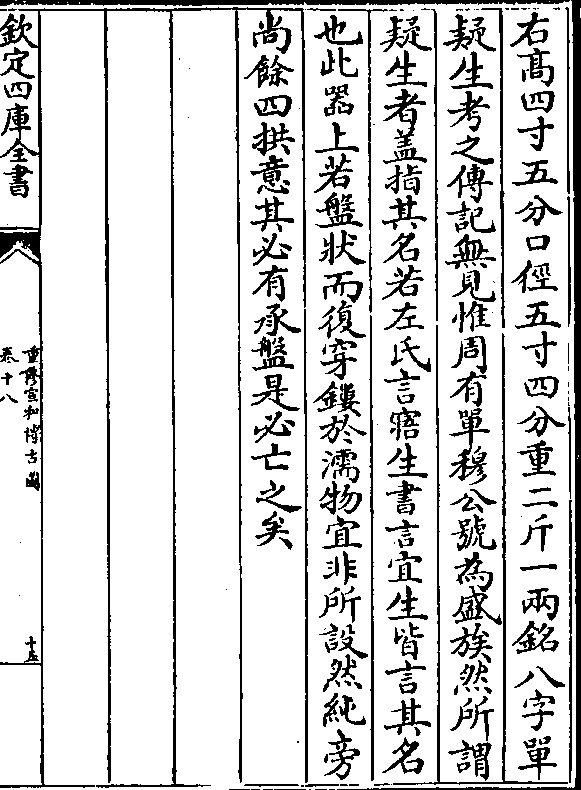 右髙四寸五分口徑五寸四分重二斤一兩銘八字單
疑生考之傳記無見惟周有單穆公號為盛族然所謂
疑生者盖指其名若左氏言寤生書言宜生皆言其名
也此器上若盤狀而復穿鏤於濡物宜非所設然純旁
尚餘四拱意其必有承盤是必亡之矣
欽定四庫全書
重修宣和博古圖
卷十八
十五